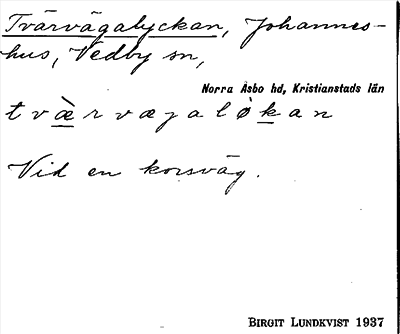 Tvärvägalyckan, Johannes-
hus, Vedby sn,
Norra Åsbo hd, Kristianstads län
tvæ̀rvægaløkan
Vid en korsväg.
BIRGIT LUNDKVIST 1937